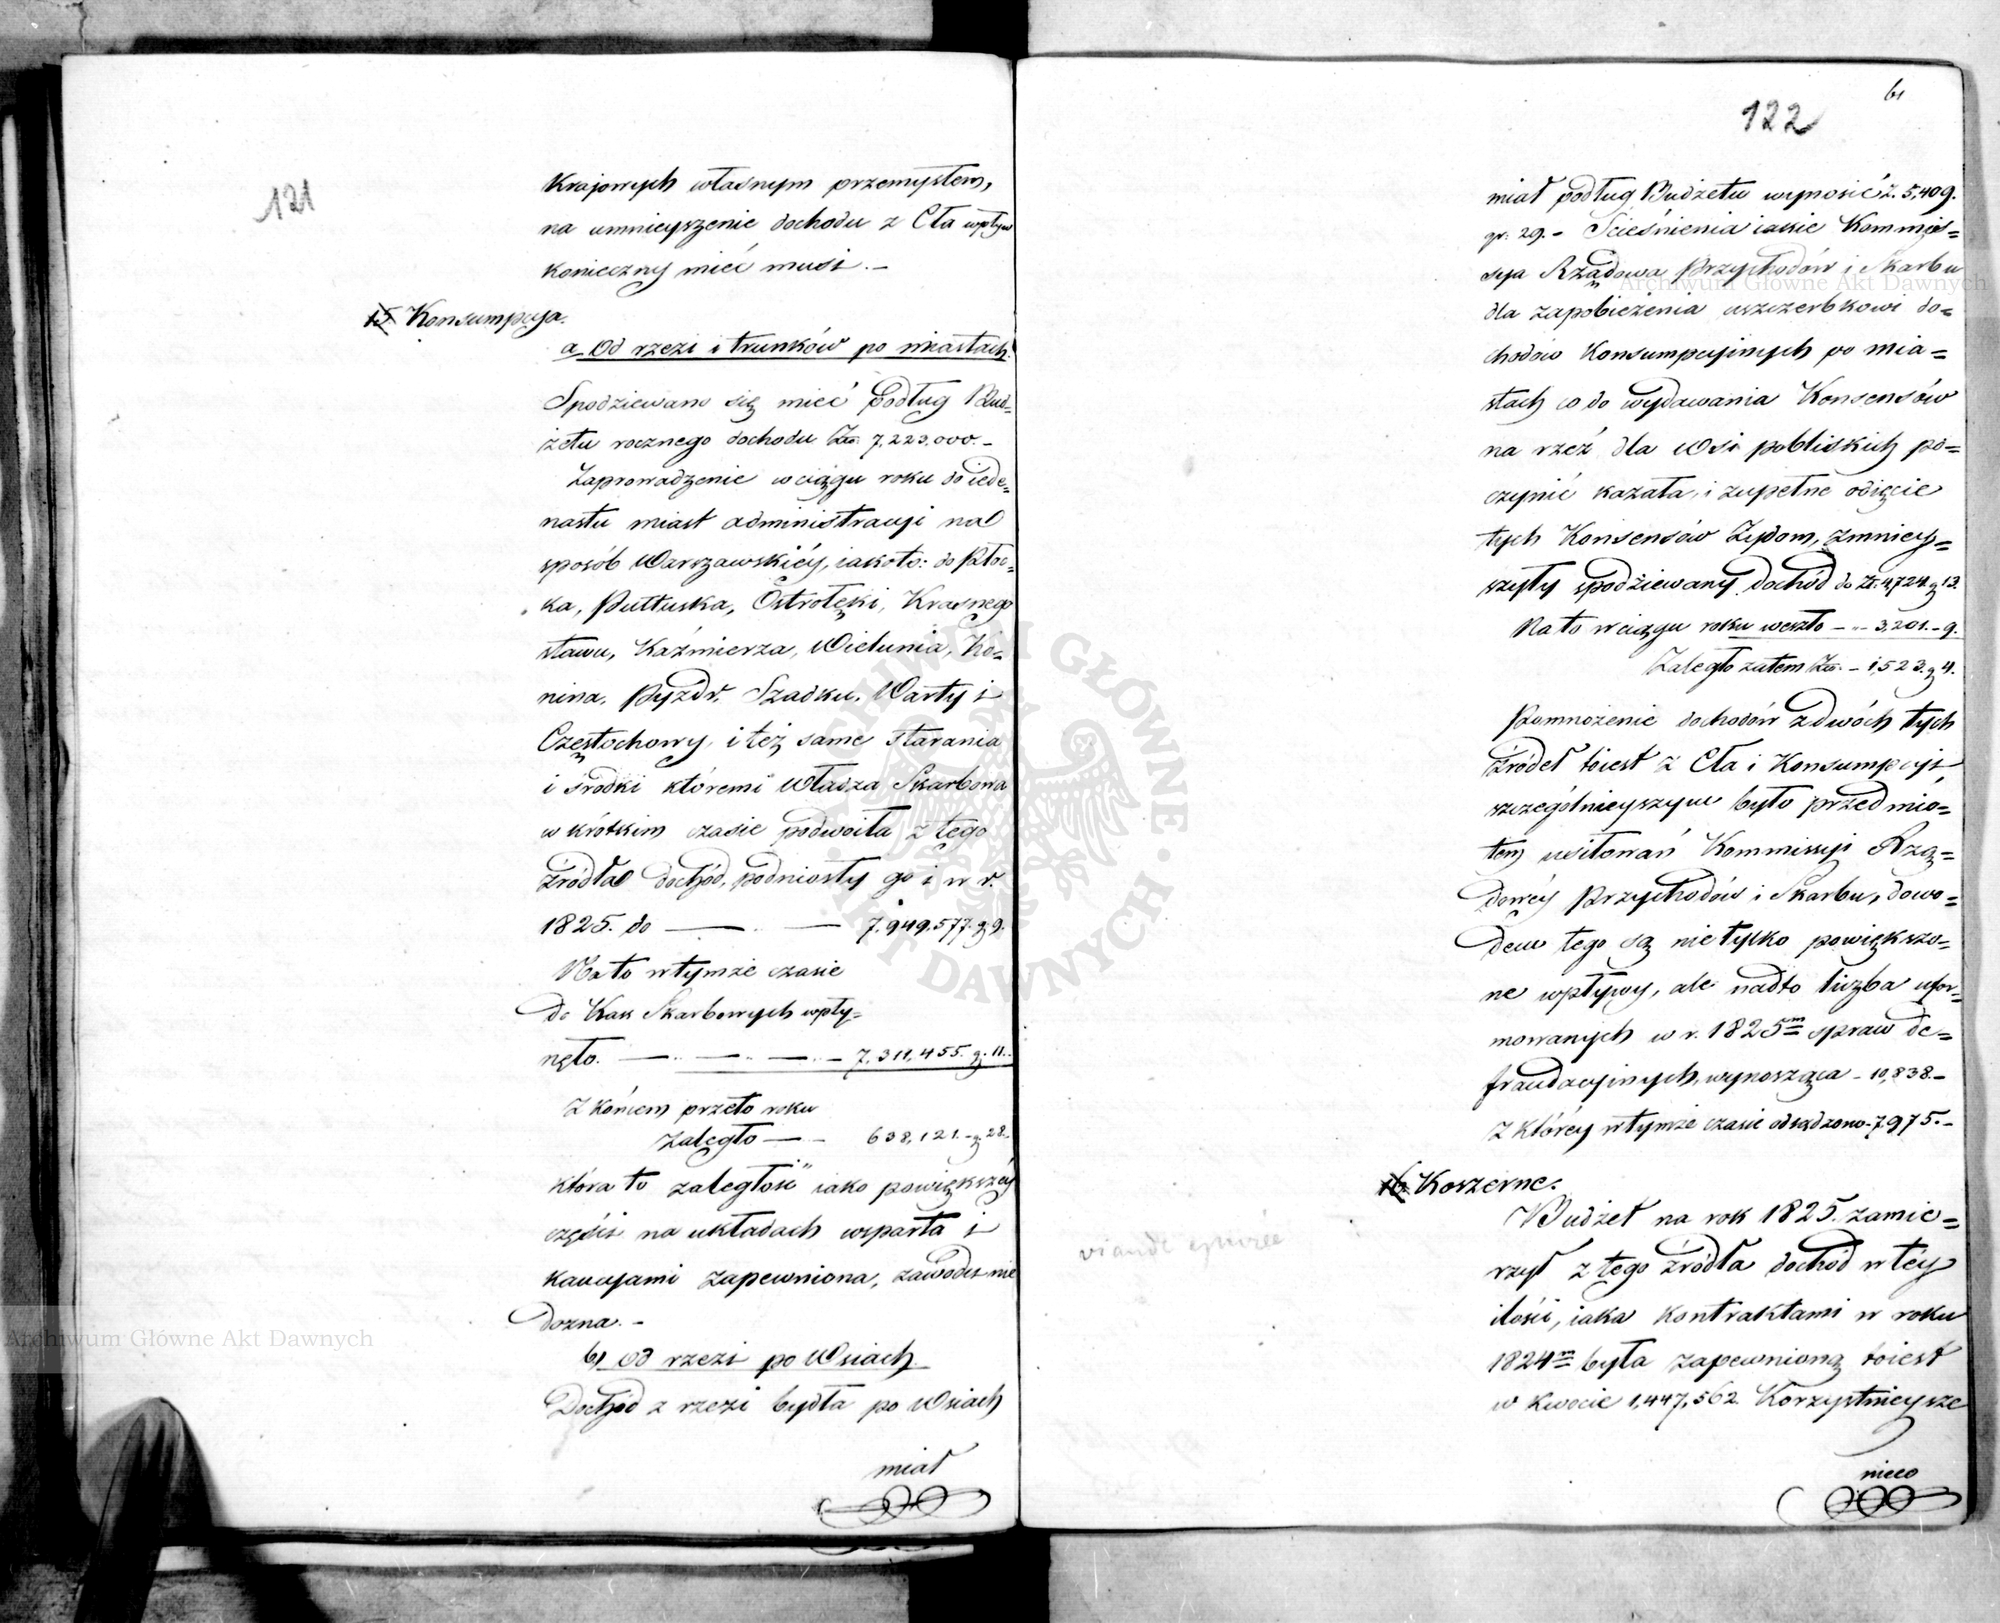 121
Krajowych własnym przemysłem,
na umnieyszenie dochodu z Cła wpływ
konieczny mieć musi. –
15 Konsumpcya.
a, Od rzezi i trunków po miastach.
Spodziewano się mieć podług Bud=
żetu rocznego dochodu Złł. 7,223,000. –
Zaprowadzenie w ciągu roku do iede=
nastu miast administracyi na
sposób Warszawskiéy, iakoto: do Płoc=
ka, Pułtuska, Ostrołęki, Krasnego
stawu, Kaźmierza, Wielunia, Ko=
nina, Pyzdr, Szadku, Warty i
Częstochowy, i też same starania
i środki któremi Władza Skarbowa
w krótkim czasie podwoiła z tego
źródła dochód, podniosły go i w r.
1825. do — — 7,949,577. g 9.
Na to w tymże czasie
do Kass Skarbowych wpły=
nęło. — — — 7,311,455. g. 11.
Z końcem przeto roku
zaległo — – 638,121. – g 28.
która to zaległość iako powiększéy
części na układach wsparta i
kaucyami zapewniona, zawodu nie
dozna. –
b, od rzezi po Wsiach.
Dochód z rzezi bydła po Wsiach
miał
61
122
miał podług Budżetu wynosić z. 5,409.
gr. 29. – Scieśnienia iakie Kommis=
sya Rządowa Przychodów i Skarbu
dla zapobieżenia uszczerbkowi do=
chodów Konsumpcyinych po mia=
stach co do wydawania Konsensów
na rzeź dla Wsi pobliskich po=
czynić kazała, i zupełne odięcie
tych Konsensów Żydom, zmniey=
szyły spodziewany dochód do Zł. 4,724. g 13.
Na to w ciągu roku weszło – – 3,201. – 9.
Zaległo zatem Złł. – 1,523. g 4.
Pomnożenie dochodów z dwóch tych
źródeł toiest z Cła i Konsumpcyi,
szczególnieyszym było przedmio=
tem usiłowań Kommissyi Rzą=
dowéy Przychodów i Skarbu, dowo=
dem tego są nietylko powiększo=
ne wpływy, ale nadto liczba ufor=
mowanych w r. 1825m spraw de=
fraudacyinych, wynosząca – 10,838. –
z któréy w tymże czasie odsądzono – 7,975. –
16 Koszerne.
Budżet na rok 1825. zamie=
rzył z tego źródła dochód w téy
ilości, iaka kontraktami w roku
1824m była zapewnioną toiest
w kwocie 1,447,562. Korzystnieysze
nieco
viande
Archiwum Główne Akt Dawnych
Archiwum Główne Akt Dawnych
ARCHIWUM GŁÓWNE AKT DAWNYCH